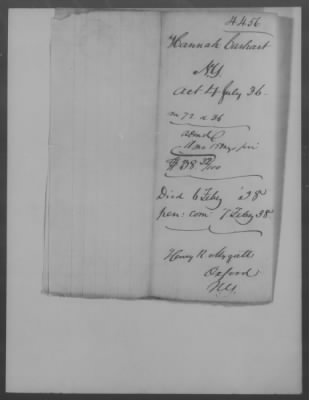 4456
Hannah Earhart
N.Y.
Act 4 July 36
m 72 d 36
admd
$38 32/100
Died 6 Feby '38
pen: com: 7 Feby 38
Henry R. Mygatt
Oxford
N.Y.